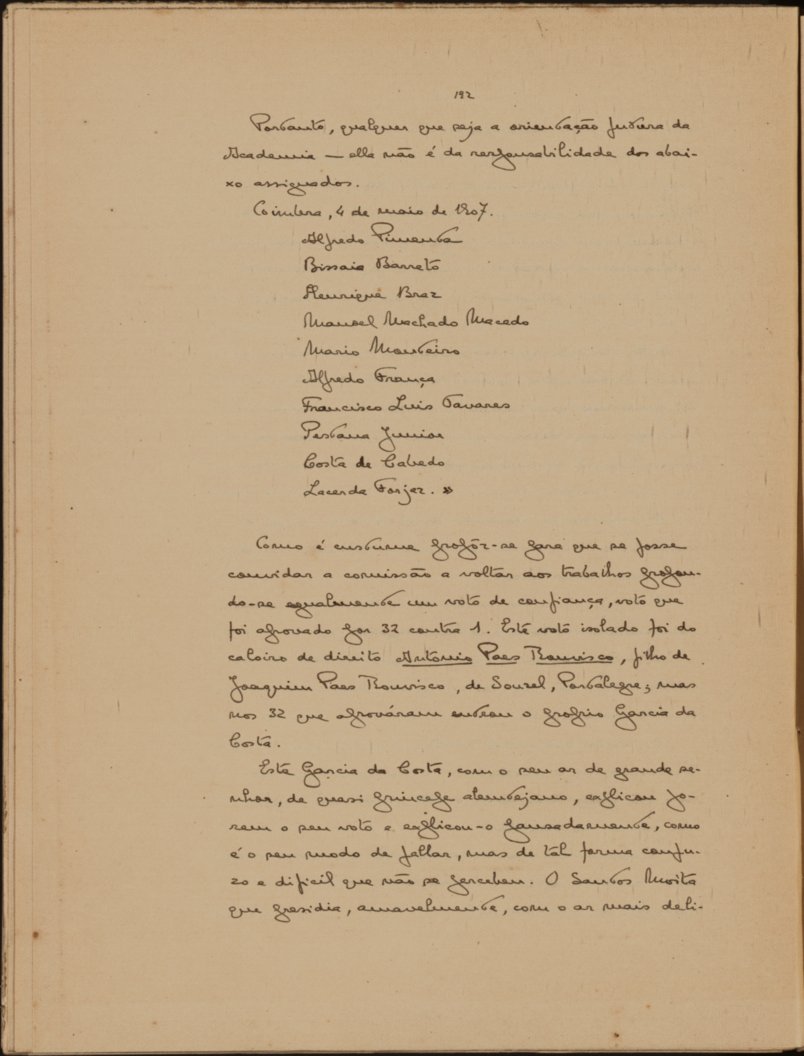 192
Portanto, qualquer que seja a orientação futura da
Academia — ella não é da responsabilidade dos abai-
xo assignados.
Coimbra, 4 de maio de 1907.
Alfredo Pimenta
Bissaia Barreto
Henrique Braz
Manoel Machado Macedo
Mario Monteiro
Alfredo França
Francisco Luis Tavares
Pestana Junior
Costa de Cabedo
Lacerda Forjaz. »
Como é custume propôr-se para que se fosse
convidar a comissão a voltar aos trabalhos propon-
do-se egualmente um voto de confiança, voto que
foi aprovado por 32 contra 1. Este voto isolado foi do
caloiro de direito Antonio Paes Rouvisco, filho de
Joaquim Paes Rouvisco, de Souzel, Portalegre; mas
nos 32 que aprováram entrou o proprio Garcia da
Costa.
Este Garcia da Costa, com o seu ar de grande se-
nhor, de quasi principe alentejano, explicou po-
rem o seu voto e explicou-o pausadamente, como
é o seu modo de fallar, mas de tal forma confu-
zo e dificil que não se percebeu. O Santos Moita
que presidia, amavelmente, com o ar mais deli-